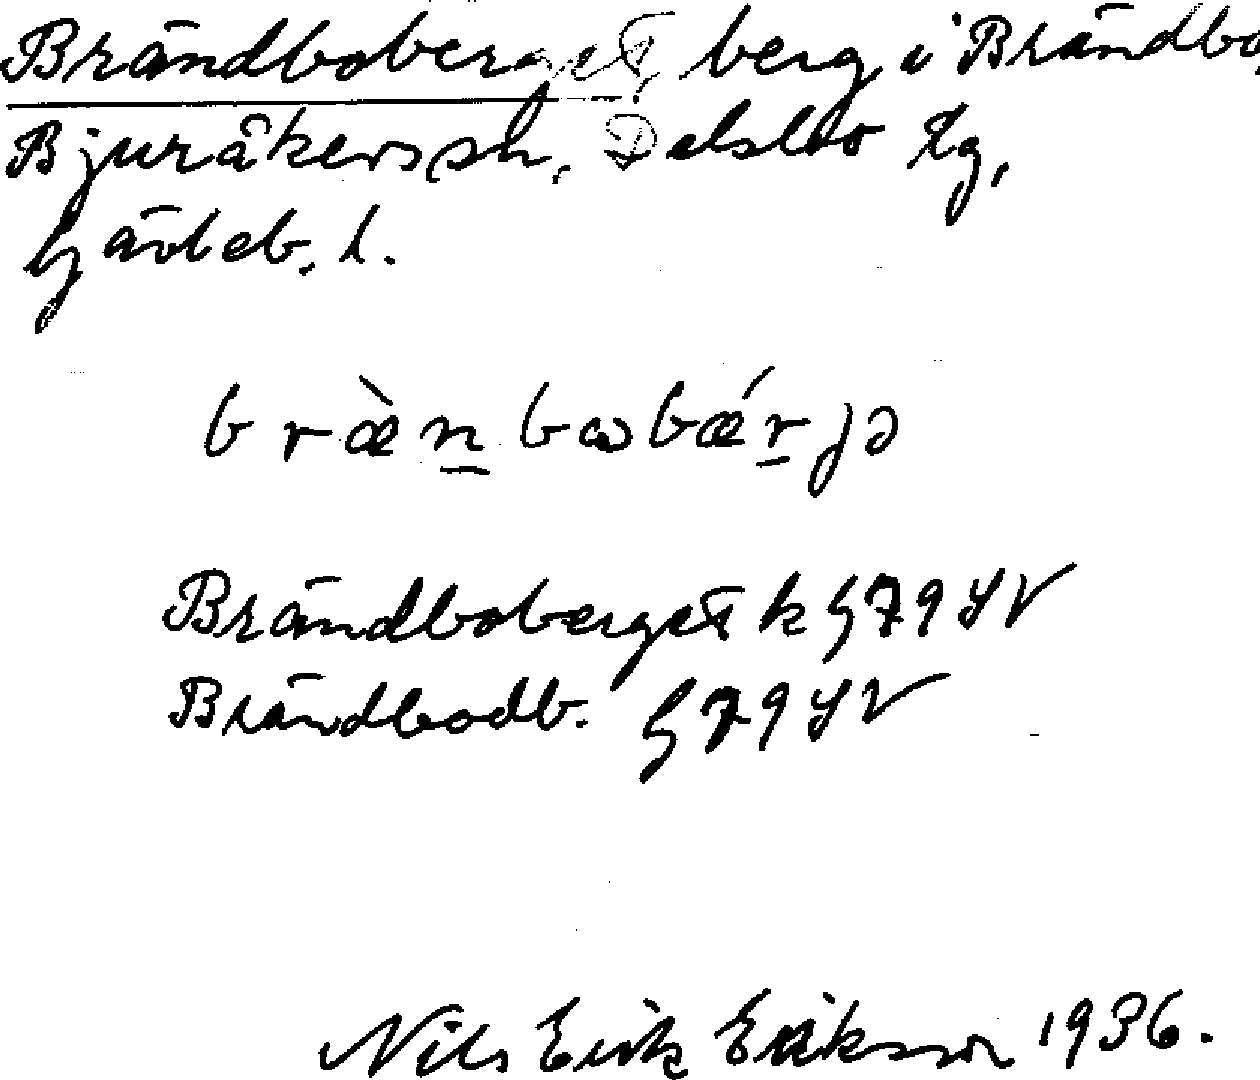 Brändboberget, berg i Brändbo,
Bjuråkers sn, Delsbo tg,
Gävleb. l.
bræ̀n̲bωbǽr̲jə
Brändboberget k G79 SV
Brändbodb. G79 SV
Nils Erik Eriksson 1936.